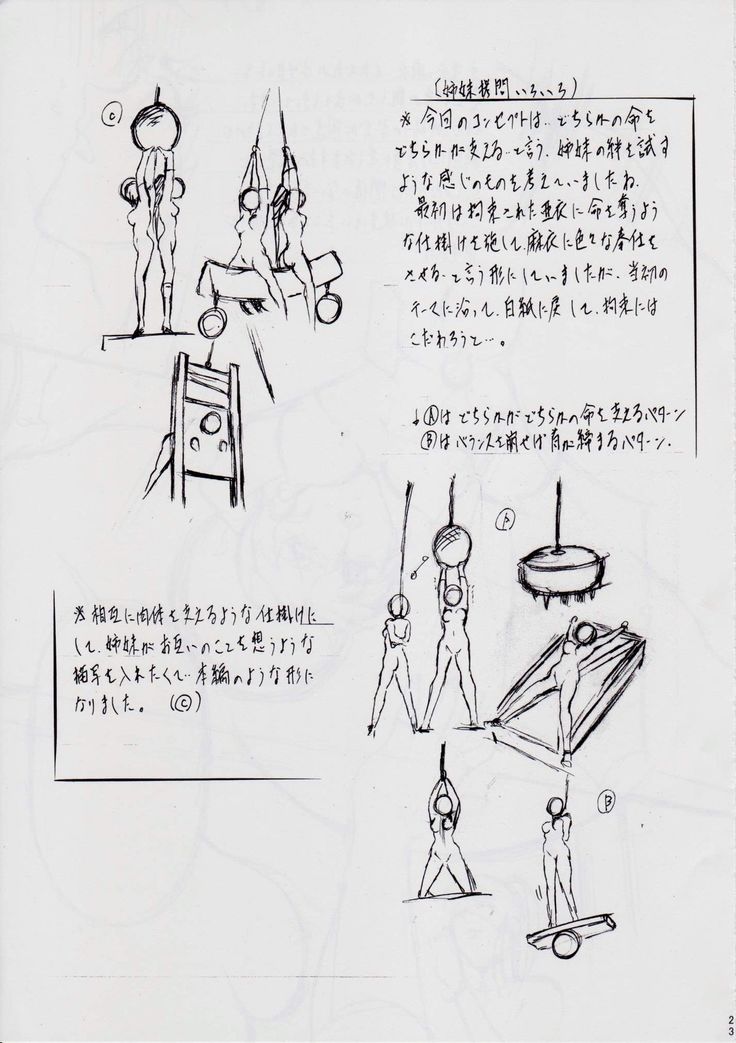 (姉妹拷問いろいろ)
※ 今回のコンセプトは…どちらかの命を
どちらかが支える…と言う、姉妹の絆を試す
ような感じのものを考えていましたね。
最初は拘束された亜衣に命を奪うよう
な仕掛けを施して、麻衣に色々な奉仕を
させる…と言う形にしていましたが、当初の
テーマに沿って、白紙に戻して、拘束には
こだわろうと…。
↓Ⓐはどちらかがどちらかの命を支えるパターン
Ⓑはバランスを崩せば首が締まるパターン。
Ⓒ
※相互に肉体を支えるような仕掛けに
して、姉妹がお互いのことを想うような
描写を入れたくて…本編のような形に
なりました。 (Ⓒ)
Ⓑ
23